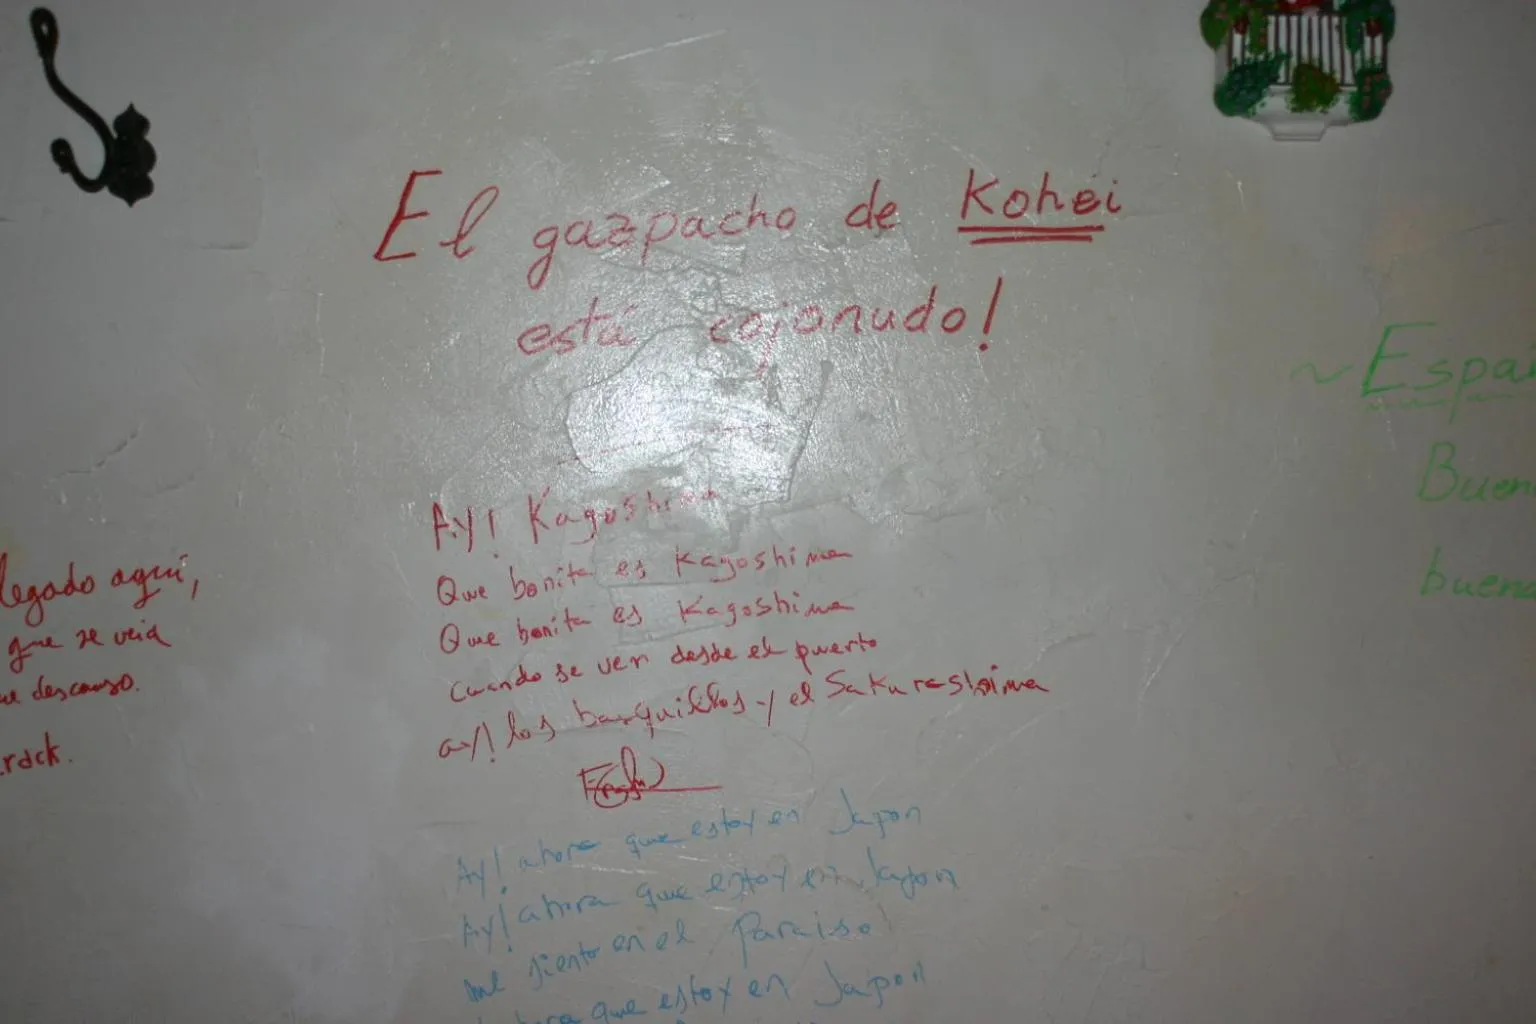 El gazpacho de Kohei
está cojonudo!
Ay! Kagoshima
Que bonita es Kagoshima
Que bonita es Kagoshima
cuando se ven desde el puerto
ay! los barquillos y el Sakurashima
Ay! ahora que estoy en Japon
Ay! ahora que estoy en Japon
me siento en el Paraiso
que estoy en Japon
legado aquí,
que se veia
descanso.
rack.
~ Españ
Buen
buena